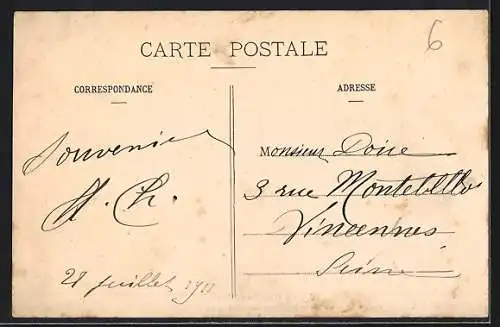 6
CARTE POSTALE
CORRESPONDANCE
ADRESSE
Souvenir
H. Ch.
28 juillet
Monsieur Doire
3 rue Montebello
Vincennes
Seine